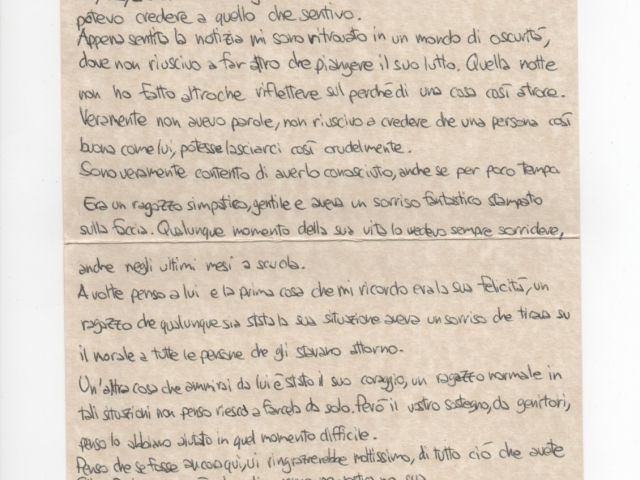 potevo credere a quello che sentivo.
Appena sentito la notizia mi sono ritrovato in un mondo di oscurità,
dove non riuscivo a far altro che piangere il suo lutto. Quella notte
non ho fatto altroche riflettere sul perché di una cosa così atroce.
Veramente non avevo parole, non riuscivo a credere che una persona così
buona come lui, potesse lasciarci così crudelmente.
Sono veramente contento di averlo conosciuto, anche se per poco tempo.
Era un ragazzo simpatico, gentile e aveva un sorriso fantastico stampato
sulla faccia. Qualunque momento della sua vita lo vedevo sempre sorridere,
anche negli ultimi mesi a scuola.
A volte penso a lui e la prima cosa che mi ricordo era la sua felicità, un
ragazzo che qualunque sia stata la sua situazione aveva un sorriso che tirava su
il morale a tutte le persone che gli stavano attorno.
Un'altra cosa che ammirai da lui è stato il suo coraggio, un ragazzo normale in
tali situazioni non penso riesca a farcela da solo. Però il vostro sostegno, da genitori,
penso lo abbiano aiutato in quel momento difficile.
Penso che se fosse ancora qui, vi ringrazierebbe moltissimo, di tutto ciò che avete